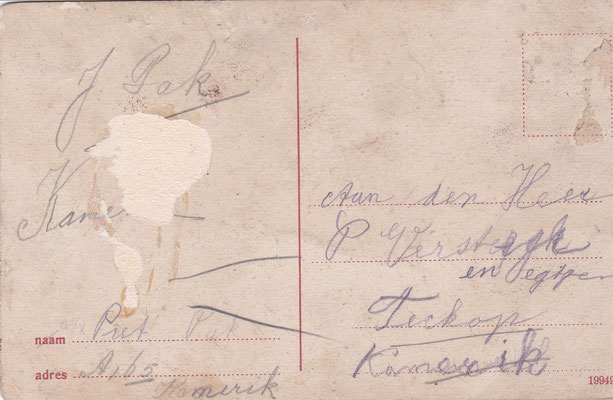 J. Pak
Kame
naam Piet Pak
adres A 165
Kamerik
Aan den Heer
P. Verstegh
en
Teckop
Kamerik
19949